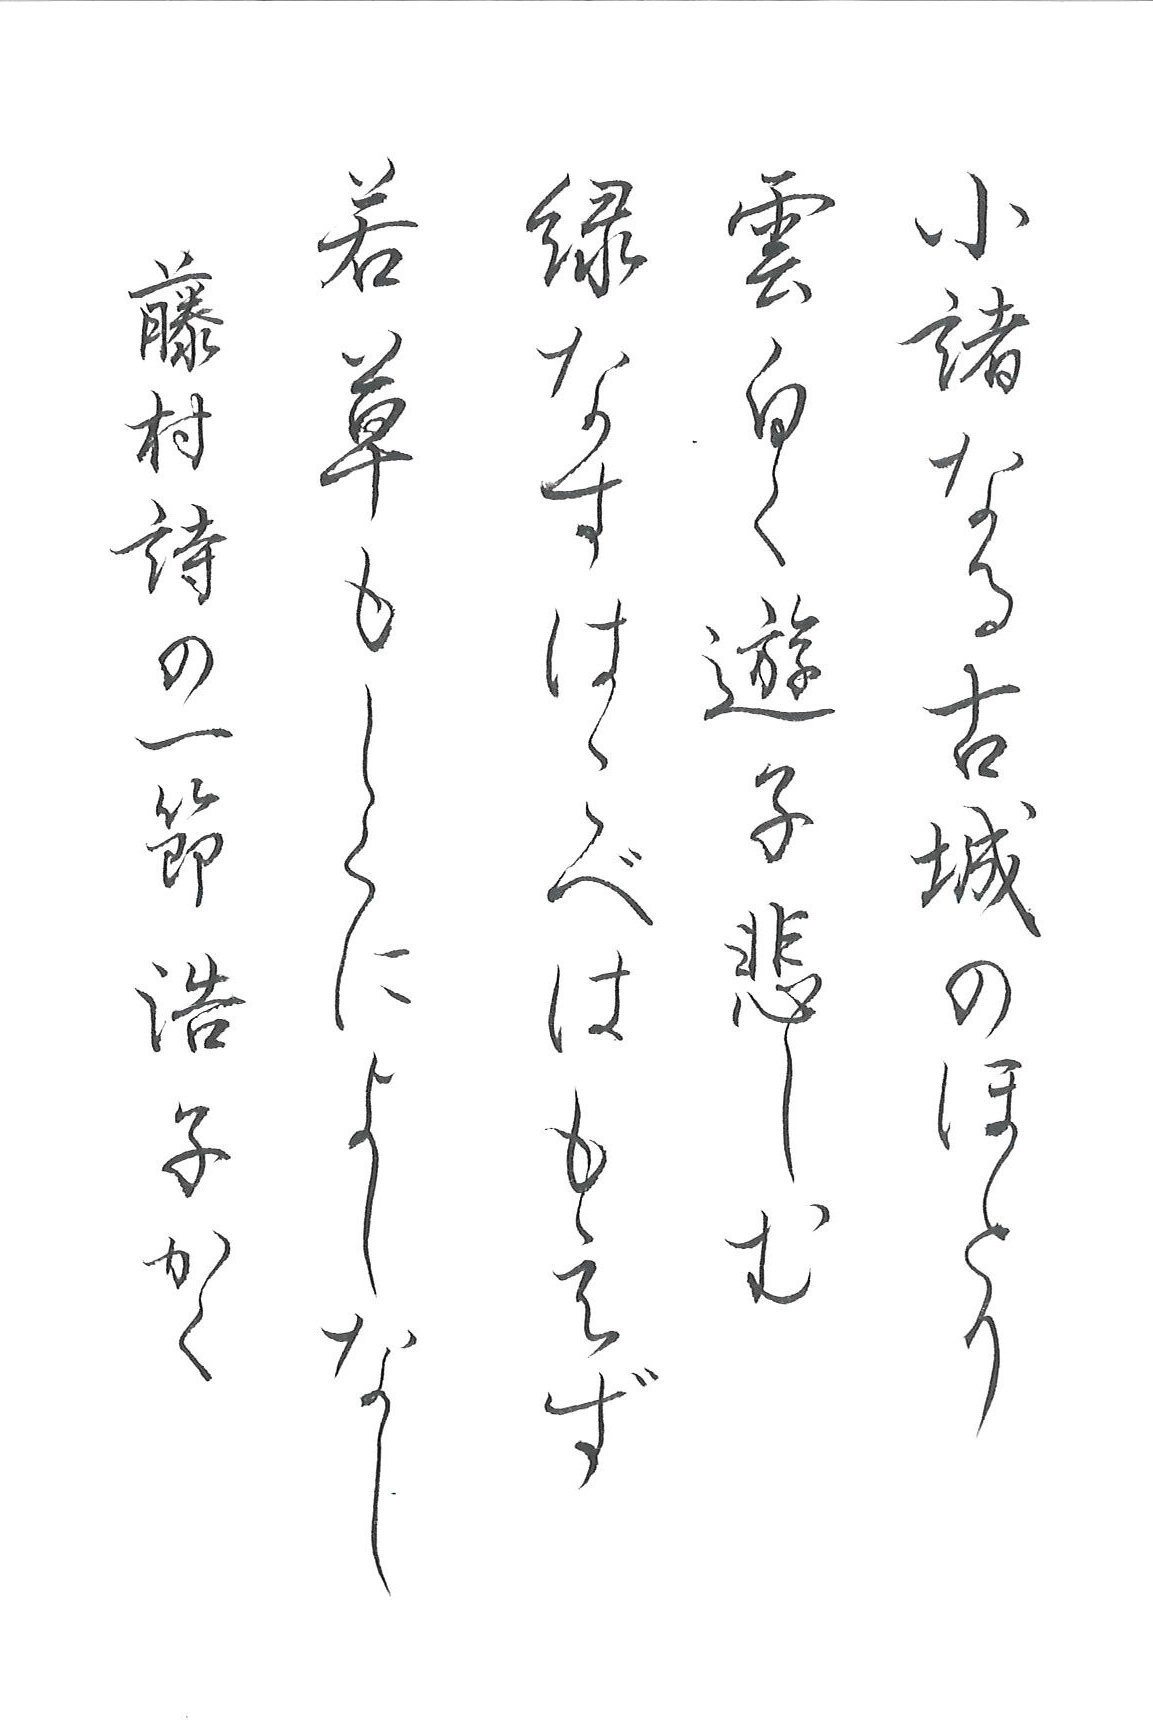 小諸なる古城のほとり
雲白く遊子悲しむ
緑なすはこべはもえず
若草もしくによしなし
藤村詩の一節 浩子かく